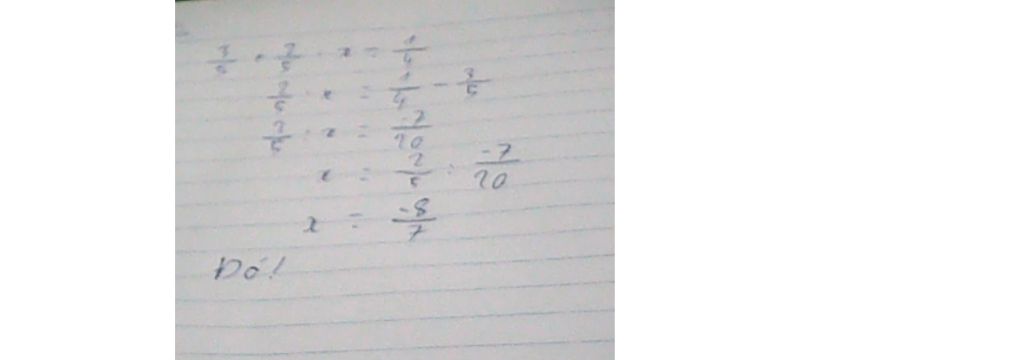 3/5 + 2/5 · x = 1/4
2/5 · x = 1/4 - 3/5
2/5 · x = -7/20
x = 2/5 : -7/20
x = -8/7
Đó!